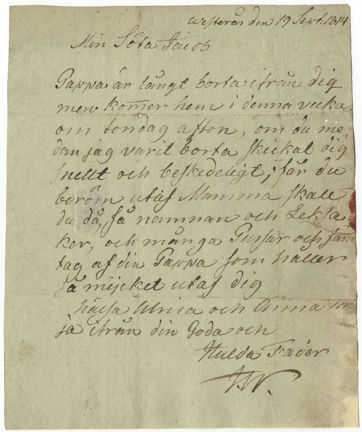 Westerås den 19 Sept. 1814
Min Söta Jacob
Pappa är långt borta ifrån dig
men kommer hem i denna vecka
om torsdag afton, om du me-
dan jag varit borta skickat dig
snellt och beskedeligt, får du
beröm utaf Mamma skall
du då få namnam och Lekka
ker, och många Pussar och
tag af din Pappa som håller
så mycket utaf dig
hälsa Ulrica och Anna
så ifrån din Goda och
Hulda Fader